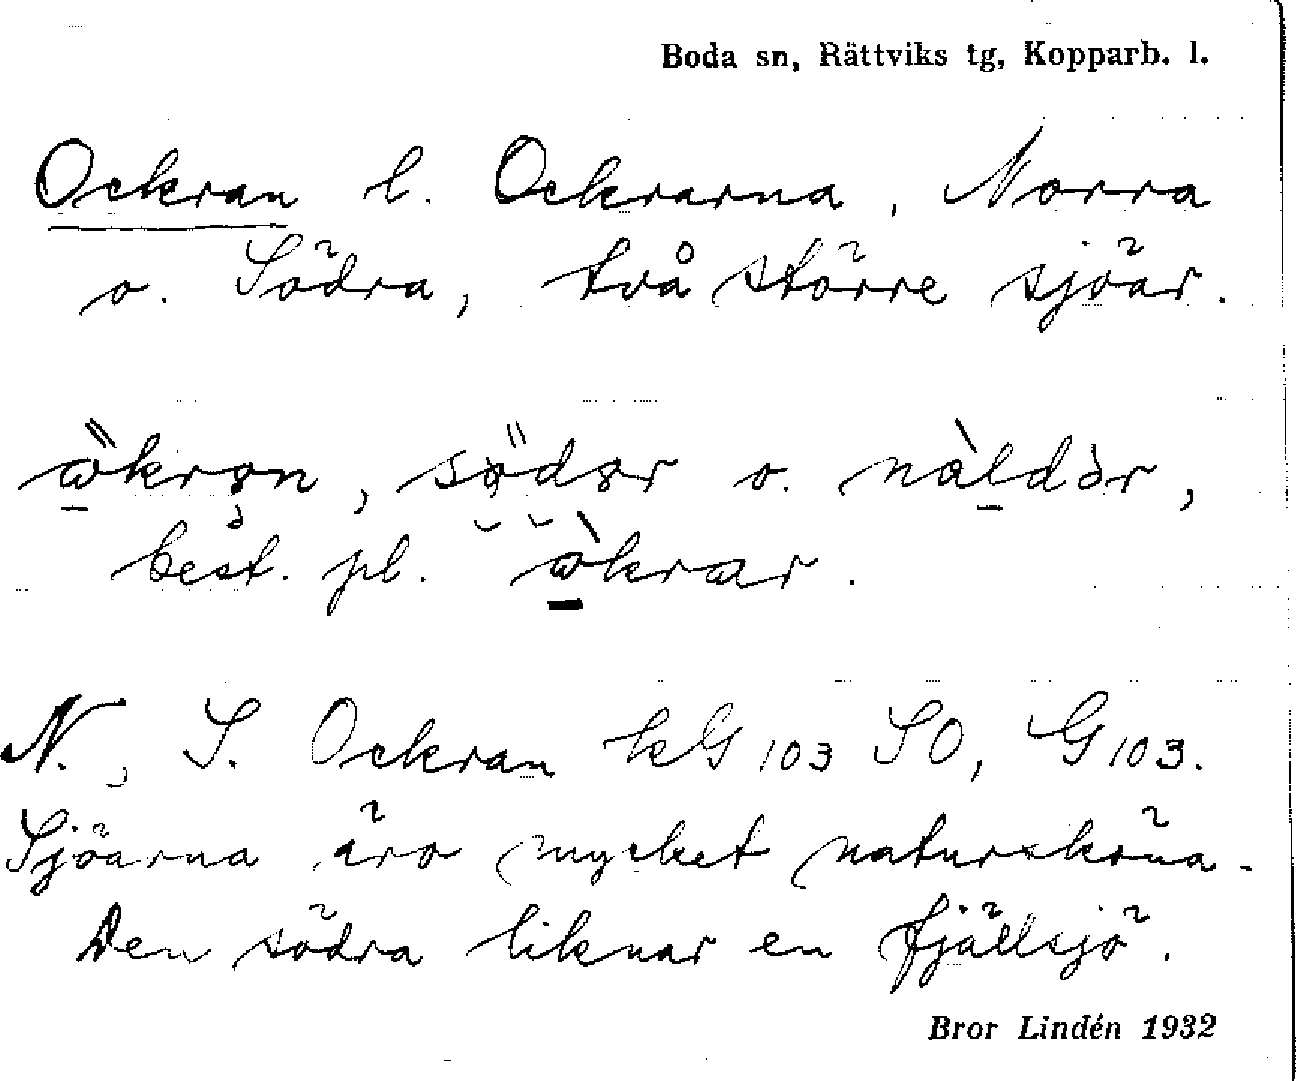 Boda sn, Rättviks tg, Kopparb. l.
Ockran l. Ockrarna, Norra
o. Södra, två större sjöar.
o.
best. pl.
N., S. Ockran kG 103 SO, G 103.
Sjöarna äro mycket natursköna.
Den södra liknar en fjällsjö.
Bror Lindén 1932